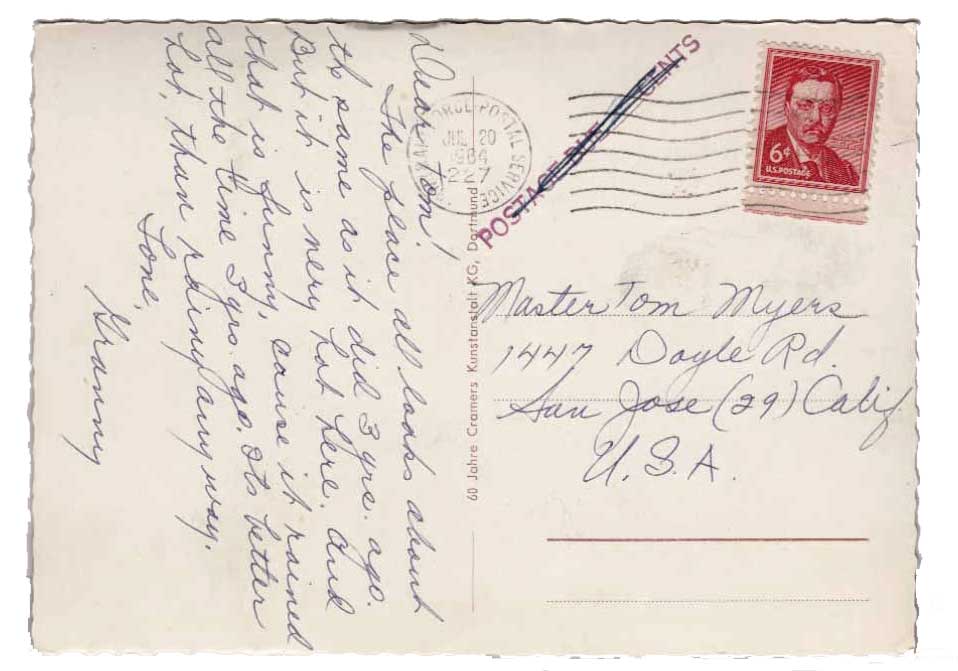 Dear Tom!
The place all looks about
the same as it did 3 yrs. ago.
But it is very hot here. And
that is funny, cause it rained
all the time 3 yrs. ago. Its better
hot, than rainy anyway.
Love,
Granny
FORCE POSTAL SERVICE
JUL 20
1964
227
POSTAGE DUE CENTS
6¢
U.S. POSTAGE
60 Jahre Cramers Kunstanstalt KG, Dortmund
Master Tom Myers
1447 Doyle Rd.
San Jose (29) Calif
U.S.A.